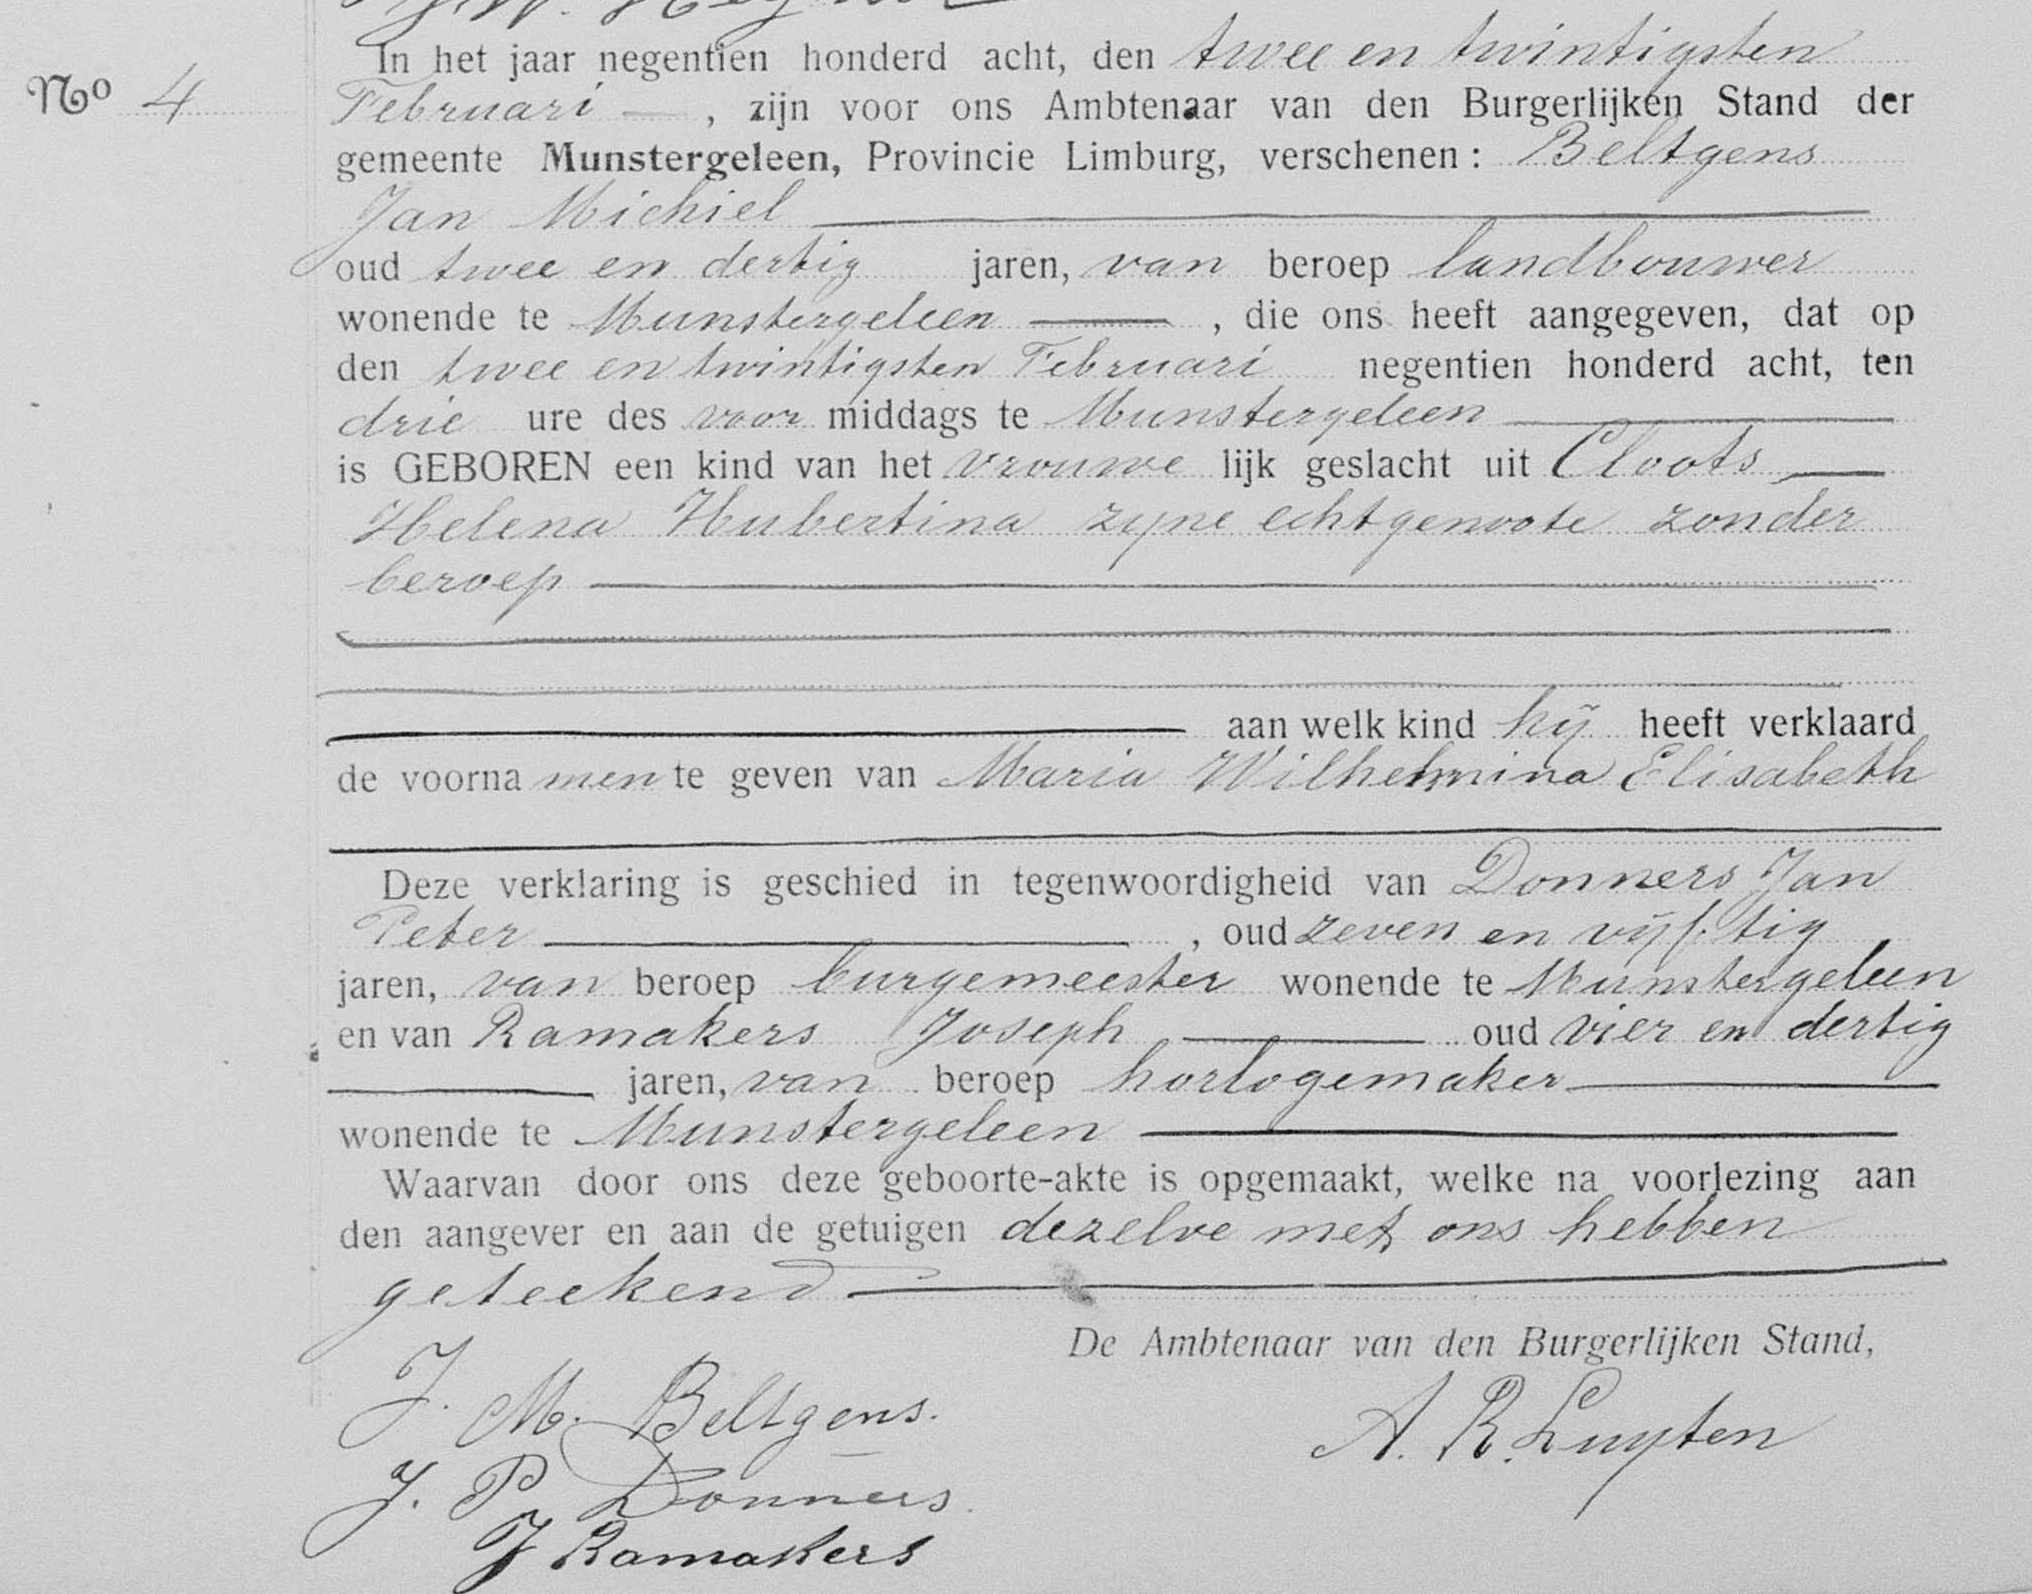 In het jaar negentien honderd acht, den twee en twintigsten
No 4
Februari — , zijn voor ons Ambtenaar van den Burgerlijken Stand der
gemeente Munstergeleen, Provincie Limburg, verschenen: Beltgens
Jan Michiel
oud twee en dertig jaren, van beroep landbouwer
wonende te Munstergeleen — , die ons heeft aangegeven, dat op
den twee en twintigsten Februari negentien honderd acht, ten
drie ure des voor middags te Munstergeleen
is GEBOREN een kind van het vrouwe lijk geslacht uit Cloots
Helena Hubertina zyne echtgenoote zonder
beroep
aan welk kind hij heeft verklaard
de voorna men te geven van Maria Wilhelmina Elisabeth
Deze verklaring is geschied in tegenwoordigheid van Donners Jan
Peter — , oud zeven en vijftig
jaren, van beroep burgemeester wonende te Munstergeleen
en van Ramakers Joseph — oud vier en dertig
jaren, van beroep horlogemaker
wonende te Munstergeleen
Waarvan door ons deze geboorte-akte is opgemaakt, welke na voorlezing aan
den aangever en aan de getuigen dezelve met ons hebben
geteekend
De Ambtenaar van den Burgerlijken Stand,
J. M. Beltgens.
A. R. Luyten
J. P. Donners.
J Ramakers